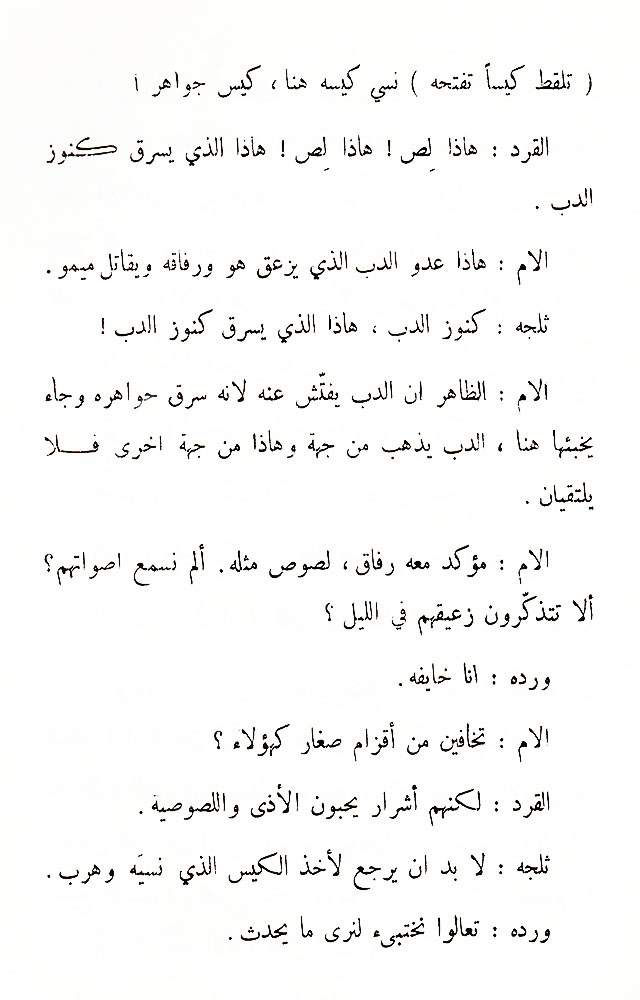 ( تلقط كيساً تفتحه ) نسي كيسه هنا ، كيس جواهر !
القرد : هاذا لِص ! هاذا لِص ! هاذا الذي يسرق كنوز
الدب .
الام : هاذا عدو الدب الذي يزعق هو ورفاقه ويقاتل ميمو .
ثلجه : كنوز الدب ، هاذا الذي يسرق كنوز الدب !
الام : الظاهر ان الدب يفتّش عنه لانه سرق حواهره وجاء
يخبئها هنا ، الدب يذهب من جهة وهاذا من جهة اخرى فـلا
يلتقيان .
الام : مؤكد معه رفاق ، لصوص مثله . ألم نسمع اصواتهم ؟
ألا تتذكّرون زعيقهم في الليل ؟
ورده : انا خايفه .
الام : تخافين من أقزام صغار كهؤلاء ؟
القرد : لكنهم أشرار يحبون الأذى واللصوصية .
ثلجه : لا بد ان يرجع لأخذ الكيس الذي نسيَه وهرب .
ورده : تعالوا نختبىء لنرى ما يحدث .